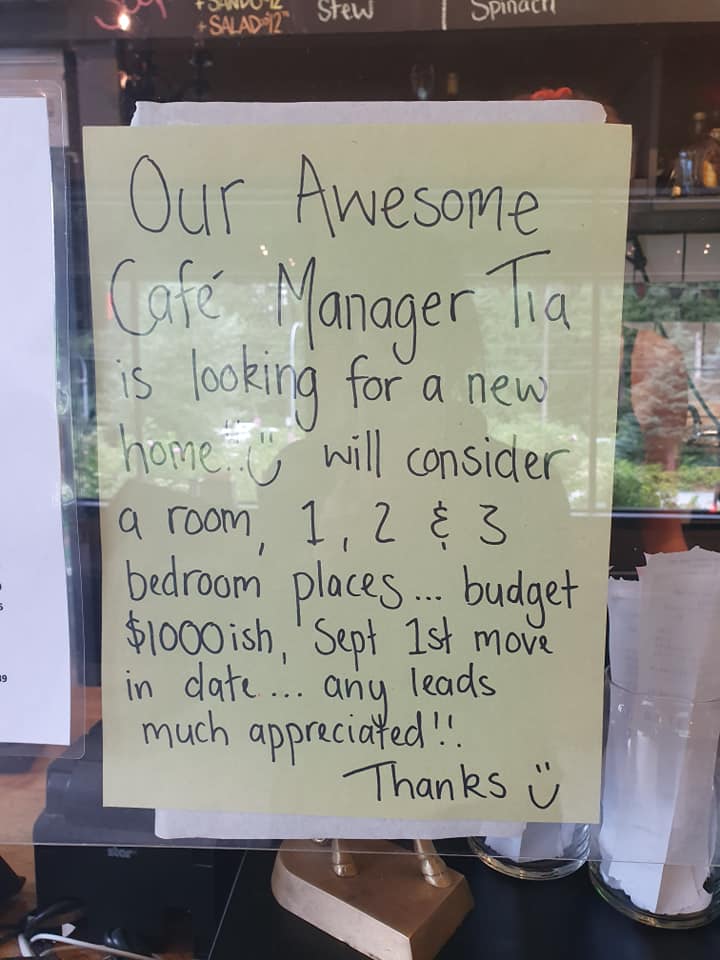 + SALAD 12
Stew
Spinach
Our Awesome
Café Manager Tia
is looking for a new
home!!.. will consider
a room, 1, 2 & 3
bedroom places... budget
$1000ish, Sept 1st move
in date.... any leads
much appreciated!!
Thanks
star